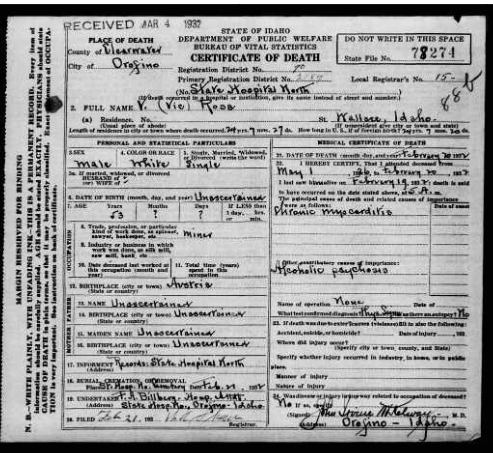 RECEIVED MAR 4 1932
STATE OF IDAHO
DEPARTMENT OF PUBLIC WELFARE
BUREAU OF VITAL STATISTICS
CERTIFICATE OF DEATH
DO NOT WRITE IN THIS SPACE
State File No. 78274
PLACE OF DEATH
County of Clearwater
City of Orofino
Registration District No.
Primary Registration District No.
Local Registrar's No. 15
88b
(No. State Hospital North
(If death occurred in a hospital or institution, give its name instead of street and number.)
2. FULL NAME V. (Vic) Ross
(a) Residence. No. St. Wallace, Idaho.
(Usual place of abode) (If nonresident give city or town and state)
Length of residence in city or town where death occurred 24 yrs. 7 mos. 27 ds. How long in U. S., if of foreign birth? yrs. mos. ds.
PERSONAL AND STATISTICAL PARTICULARS
3. SEX
Male
4. COLOR OR RACE
White
5. Single, Married, Widowed, or Divorced (write the word)
Single
5a. If married, widowed, or divorced
HUSBAND of
(or) WIFE of
6. DATE OF BIRTH (month, day, and year) Unascertained
7. AGE Years Months Days If LESS than 1 day, hrs. or min.
53 ? ?
OCCUPATION
8. Trade, profession, or particular kind of work done, as spinner, sawyer, bookkeeper, etc.
Miner
9. Industry or business in which work was done, as silk mill, saw mill, bank, etc.
10. Date deceased last worked at this occupation (month and year)
11. Total time (years) spent in this occupation
12. BIRTHPLACE (city or town) Austria
(State or country)
FATHER
13. NAME Unascertained
14. BIRTHPLACE (city or town) Unascertained
(State or country)
MOTHER
15. MAIDEN NAME Unascertained
16. BIRTHPLACE (city or town) Unascertained
(State or country)
17. INFORMANT Records: State Hospital North
(Address)
18. BURIAL, CREMATION, OR REMOVAL
Place St. Hosp. No. Cemetery Date Feb. 21, 1932
19. UNDERTAKER F. A. Billberg - Hosp. Attdt.
(Address) State Hosp. No., Orofino - Idaho
20. FILED Feb 21, 193
Registrar.
MEDICAL CERTIFICATE OF DEATH
21. DATE OF DEATH (month, day, and year) February 20 1932
22. I HEREBY CERTIFY, That I attended deceased from
May 1 to February 20 1932
I last saw him alive on February 19 1932, death is said
to have occurred on the date stated above, at
The principal cause of death and related causes of importance were as follows:
Date of onset
Chronic myocarditis
Other contributory causes of importance:
Alcoholic psychosis
Name of operation None Date of
What test confirmed diagnosis? Was there an autopsy? No
23. If death was due to external causes (violence) fill in also the following:
Accident, suicide, or homicide? Date of injury 193
Where did injury occur?
(Specify city or town, county, and State)
Specify whether injury occurred in industry, in home, or in public place.
Manner of injury
Nature of injury
24. Was disease or injury in any way related to occupation of deceased?
No If so, specify
(Signed) M. D.
(Address) Orofino - Idaho.
MARGIN RESERVED FOR BINDING